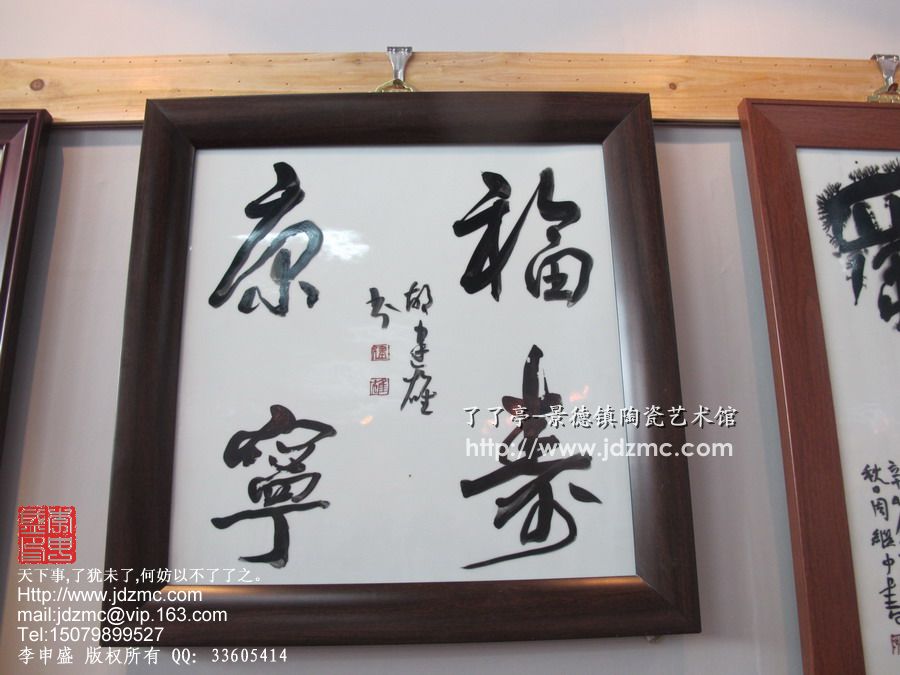 福壽
康寧
胡建雄
书
了了亭-景德镇陶瓷艺术馆
http://www.jdzmc.com
秋日周繼中書
天下事,了犹未了,何妨以不了了之。
Http://www.jdzmc.com
mail:jdzmc@vip.163.com
Tel:15079899527
李申盛 版权所有 QQ: 33605414